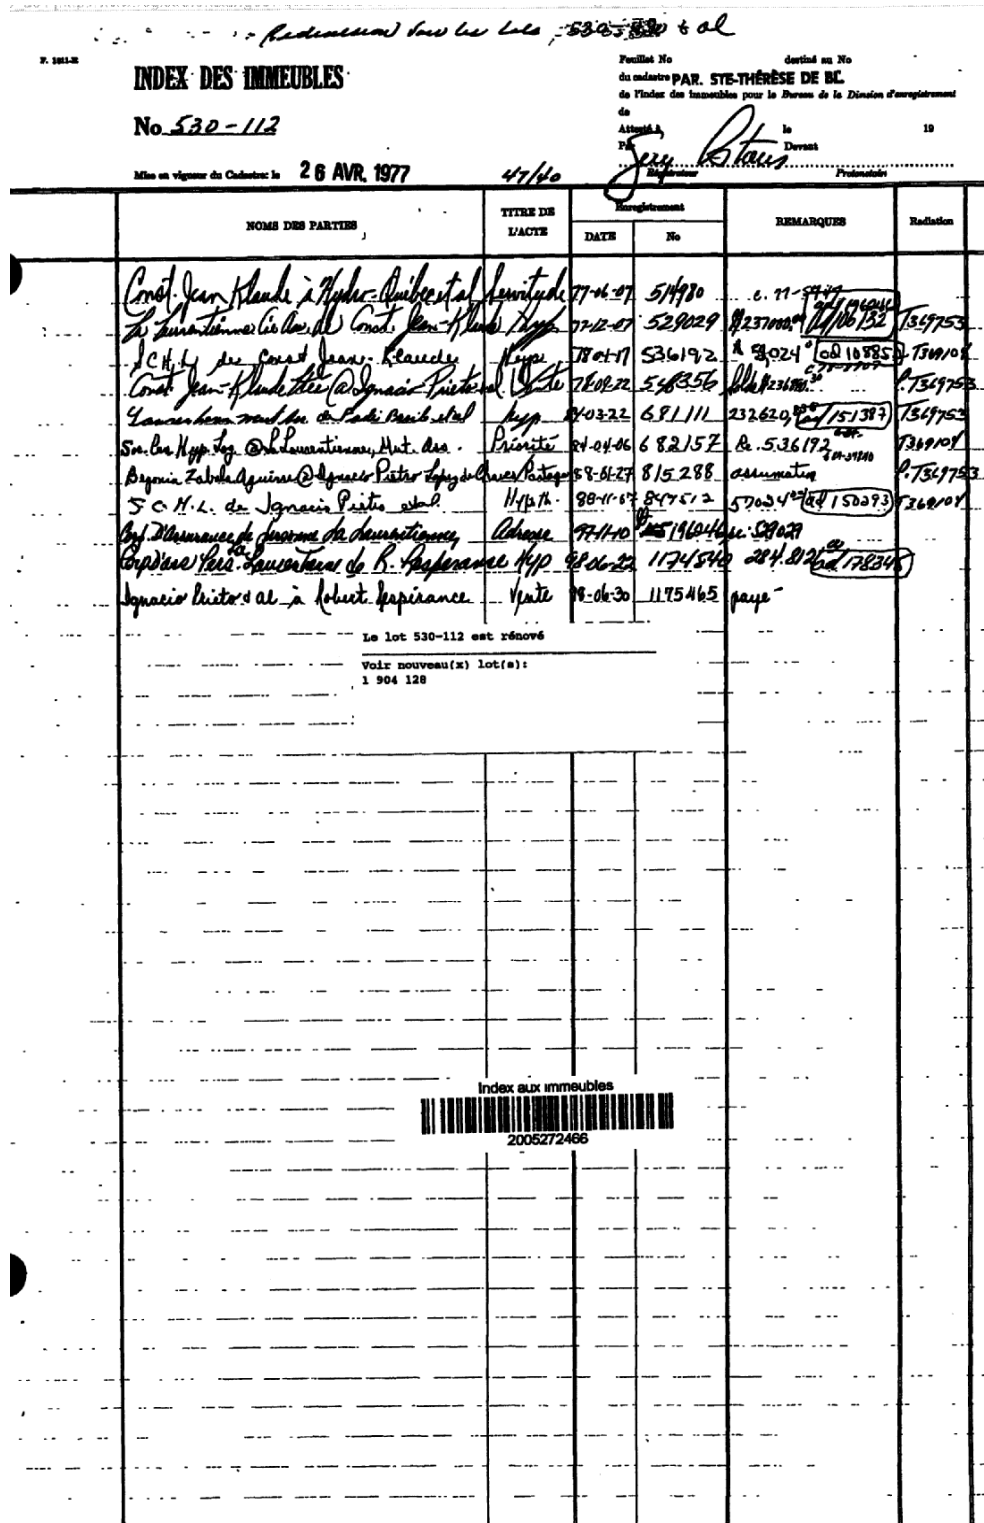 Redivision sur les lots 530- & al
F. 1611-E
INDEX DES IMMEUBLES
No 530-112
Mise en vigueur du Cadastre: le 26 AVR. 1977
47/40
Feuillet No destiné au No
du cadastre PAR. STE-THÉRÈSE DE BL.
de l'Index des immeubles pour le Bureau de la Division d'enregistrement
de
Attesté à le 19
Par Devant
Régistrateur Protonotaire
NOMS DES PARTIES TITRE DE L'ACTE Enregistrement DATE No REMARQUES Radiation
Const. Jean Klaude à Hydro-Québec et al Servitude 77-06-07 514980 c. 77-
La Laurentienne Cie Ass. de Const. Jean-Klaude Hyp 77-12-07 529029 $237000.00 ad 106132 T369753
SCHL de Const Jean-Klaude Hyp 78-04-17 536192 ad 10885 T369104
Const. Jean-Klaude Ltée @ Ignacio Prieto et al Vente 78-09-22 548356 P.T369753
hyp 84-03-22 681111 232620, ad 151387 T369753
Soc. Cen. Hyp. Log. @ La Laurentienne, Mut. Ass. Priorité 84-04-06 682157 Re. 536192 T369104
Begonia Zabala Aguirre @ Ignacio Prieto Lopez de Partage 88-01-27 815288 assumation P.T369753
S.C.H.L. de Ignacio Prieto et al. Hypth. 88-11-07 847512 57024 ad 150293 T369104
Corp. D'Assurance de personne La Laurentienne Adresse 97-11-10 re: 529029
Corp d'ass Pers. La Laurentienne de R. Lespérance Hyp 98-06-22 1174540 284.812 ad 178345
Ignacio Prieto & al à Robert Lespérance Vente 98-06-30 1175465 payé
Le lot 530-112 est rénové
Voir nouveau(x) lot(s):
1 904 128
Index aux immeubles
2005272466